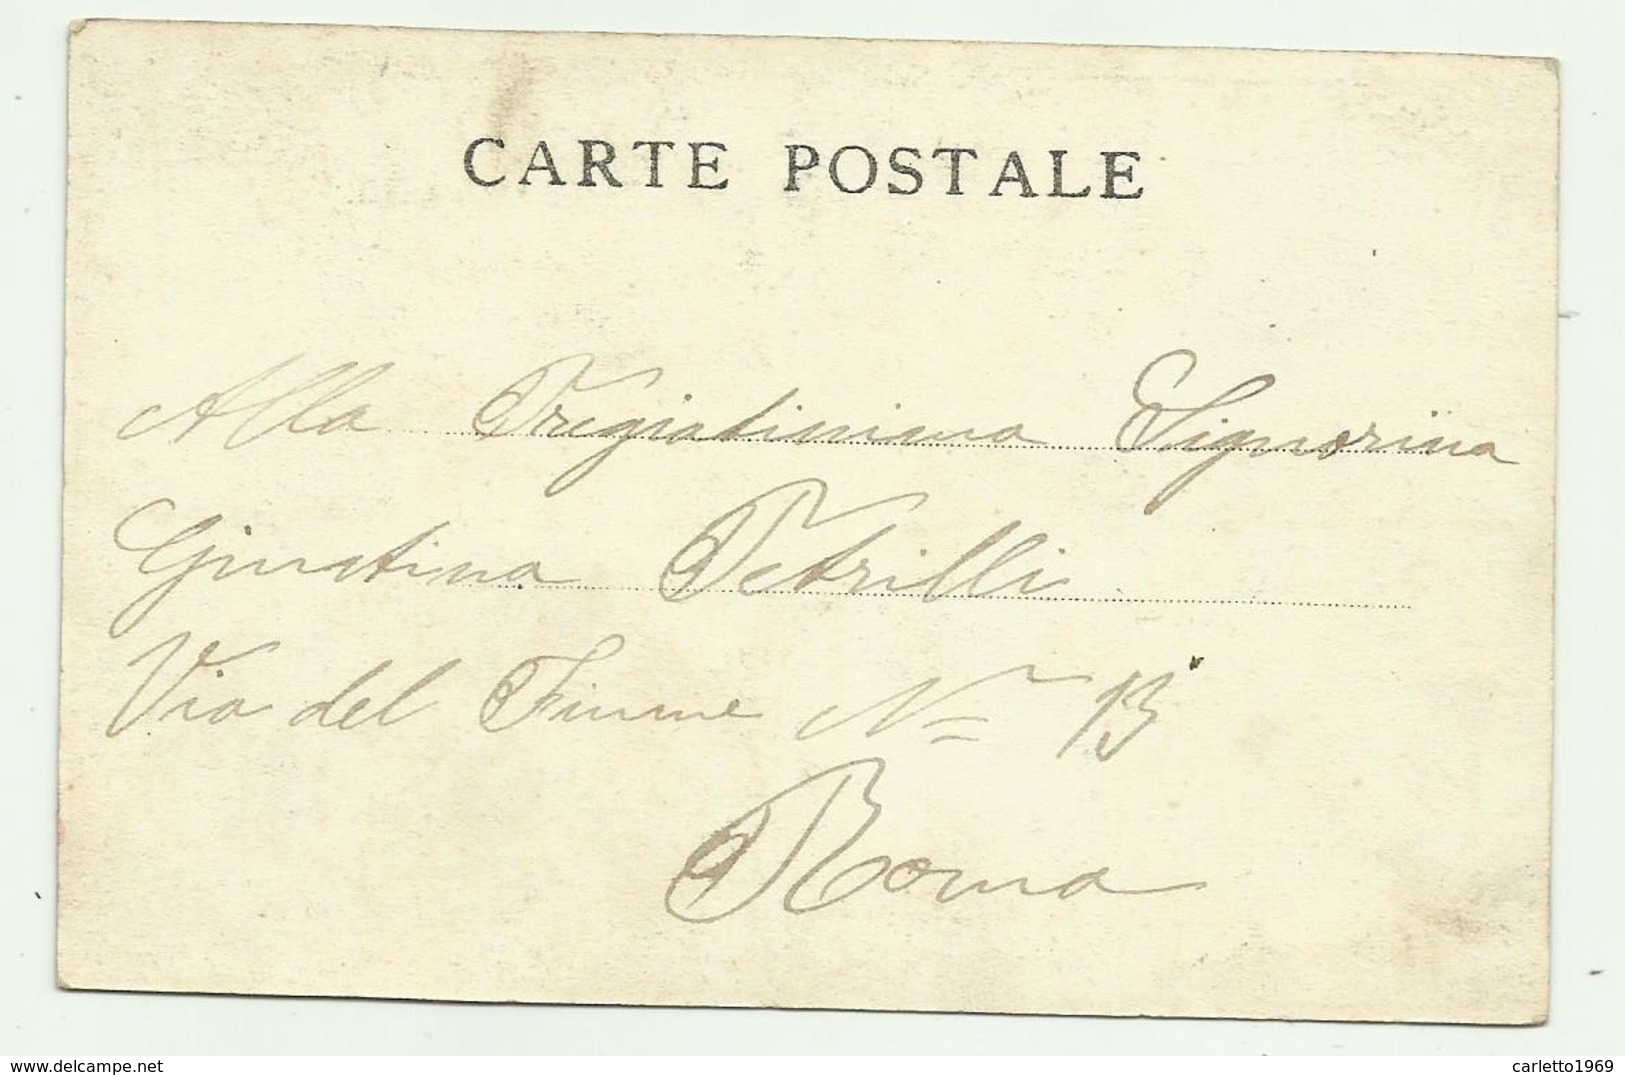 CARTE POSTALE
Alla Pregiatissima Signorina
Giustina Petrilli
Via del Fiume N= 13
Roma
delcampe.net
carletto1969